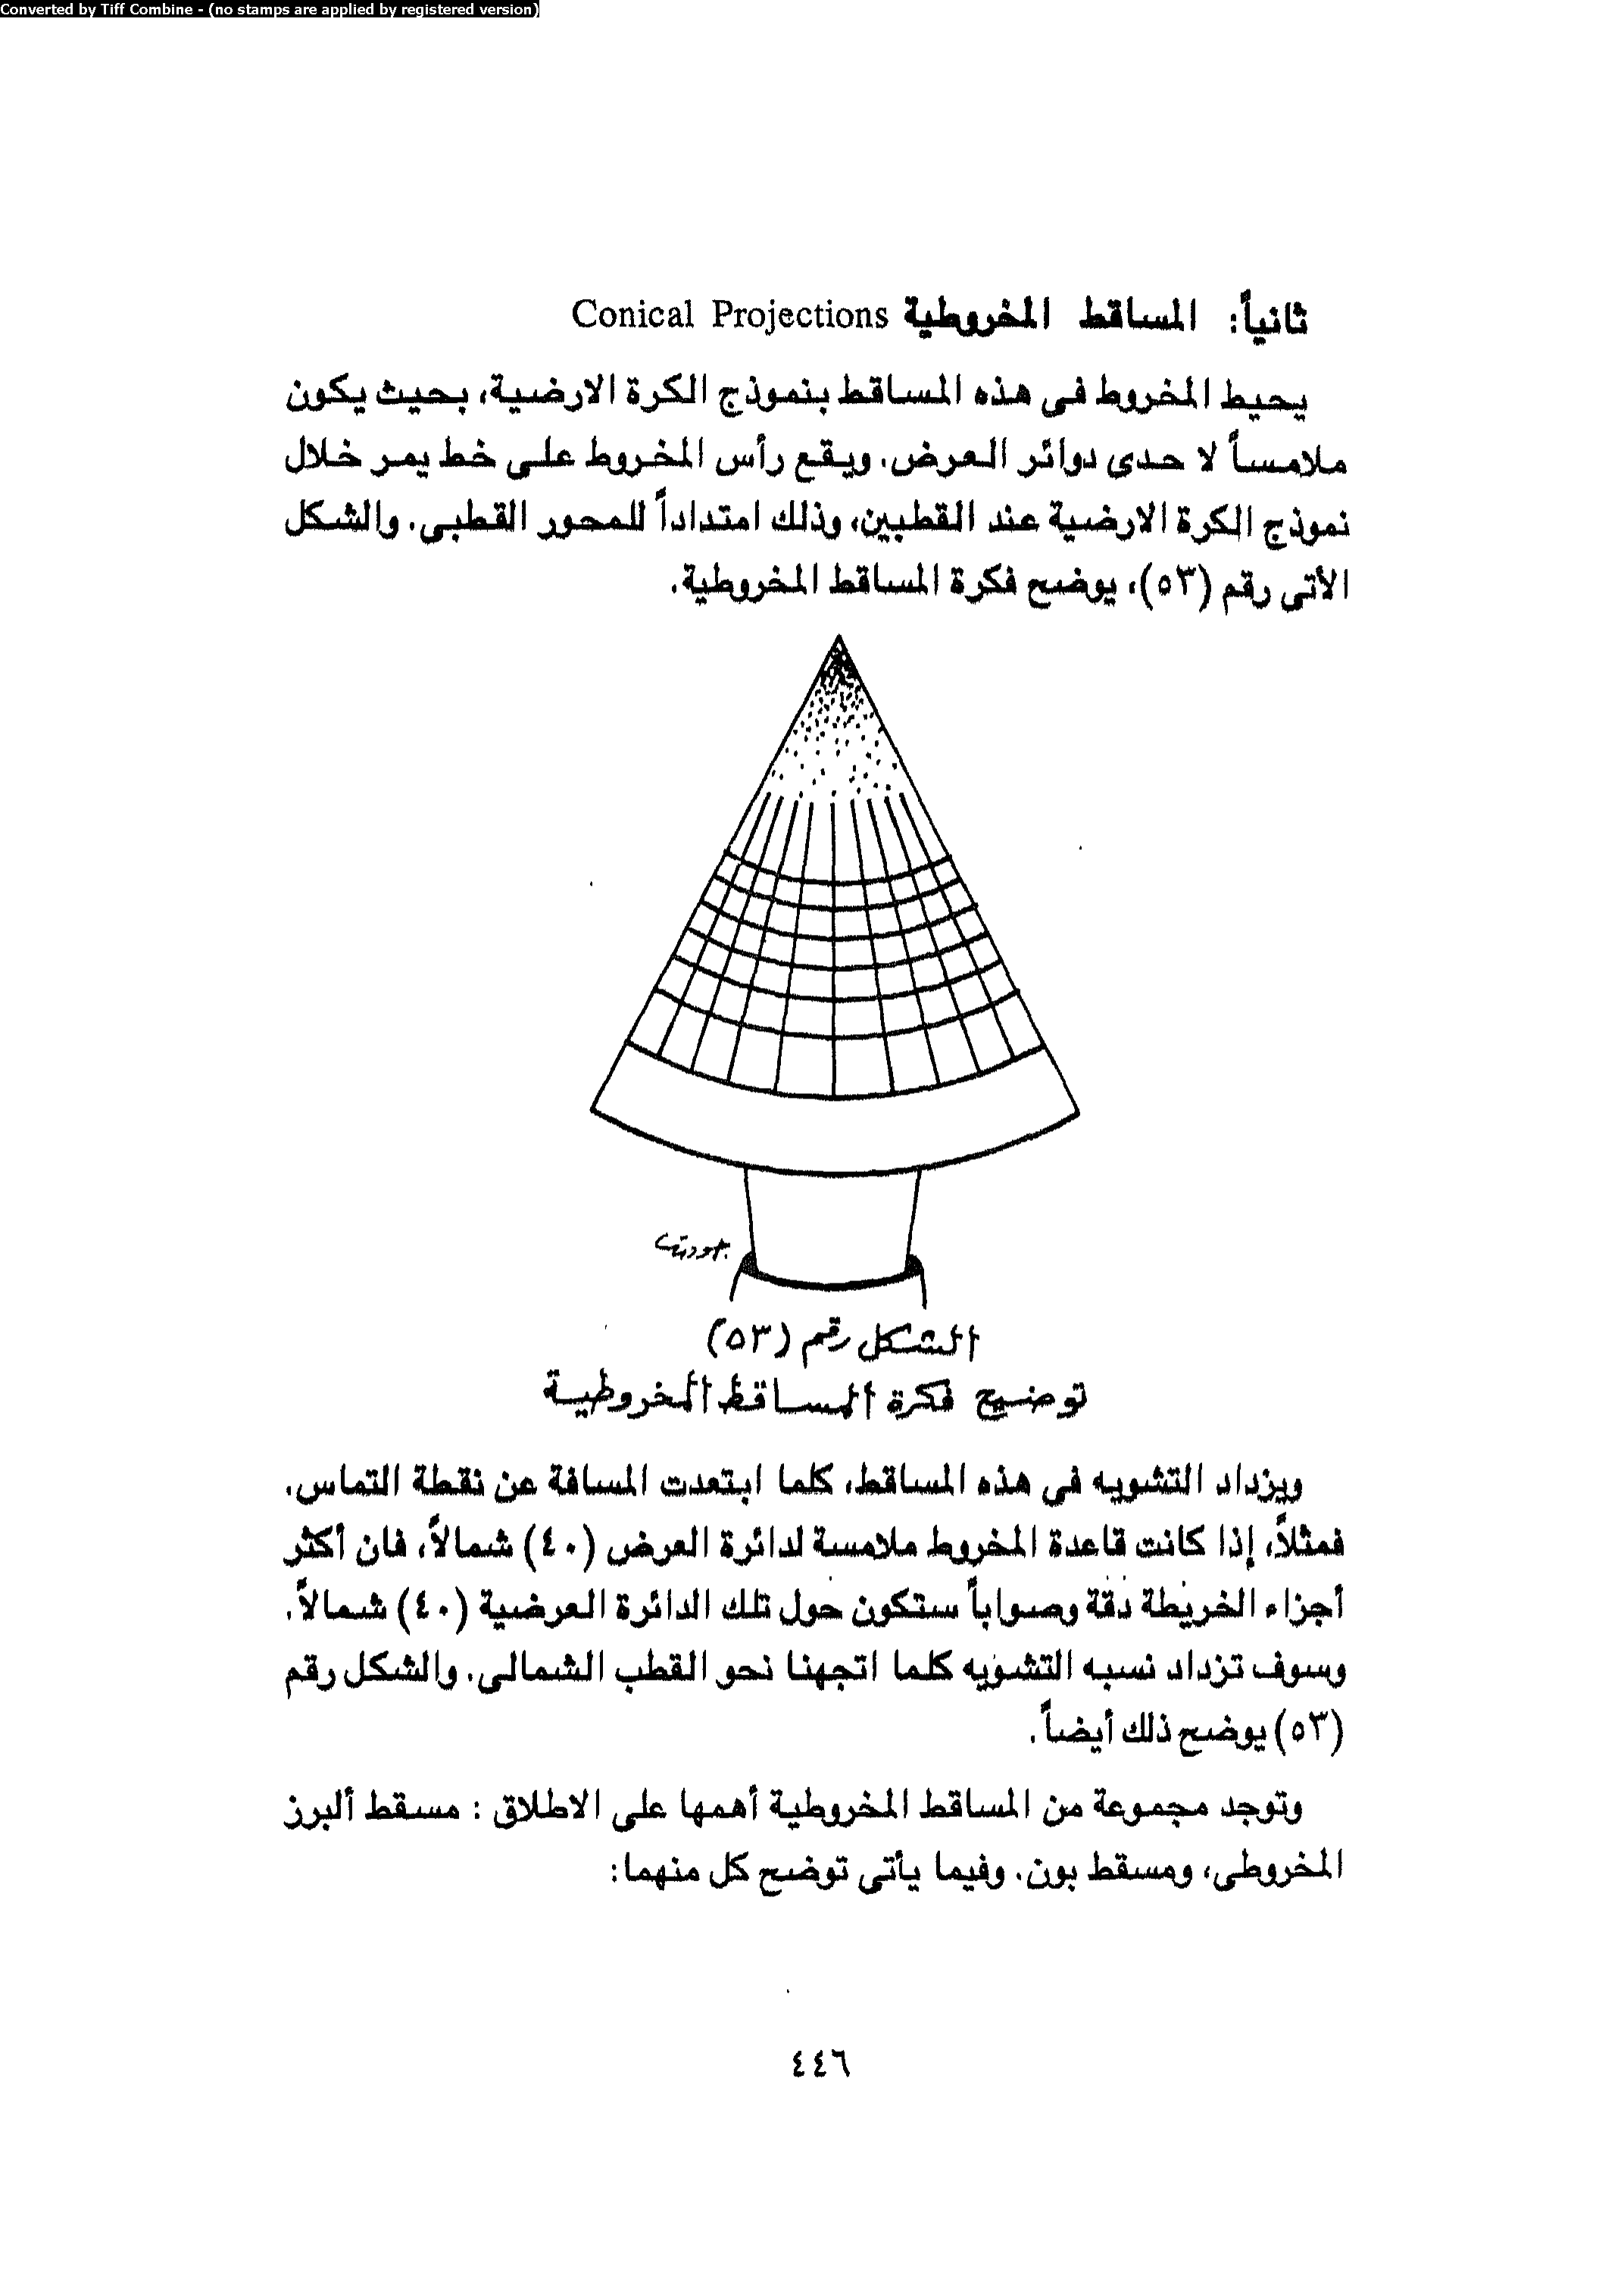 Converted by Tiff Combine - (no stamps are applied by registered version)
ثانياً: المساقط المخروطية Conical Projections
يحيط المخروط فى هذه المساقط بنموذج الكرة الارضية، بحيث يكون
ملامساً لا حدى دوائر العرض. ويقع رأس المخروط على خط يمر خلال
نموذج الكرة الارضية عند القطبين، وذلك امتداداً للمحور القطبى. والشكل
الأتى رقم (٥٣)، يوضح فكرة المساقط المخروطية.
الشكل رقم (٥٣)
توضيح فكرة المساقط المخروطية
ويزداد التشويه فى هذه المساقط، كلما ابتعدت المسافة عن نقطة التماس.
فمثلاً، إذا كانت قاعدة المخروط ملامسة لدائرة العرض (٤٠) شمالاً، فان أكثر
أجزاء الخريطة دقة وصواباً ستكون حول تلك الدائرة العرضية (٤٠) شمالاً.
وسوف تزداد نسبه التشويه كلما اتجهنا نحو القطب الشمالى. والشكل رقم
(٥٣) يوضح ذلك أيضاً.
وتوجد مجموعة من المساقط المخروطية أهمها على الاطلاق : مسقط ألبرز
المخروطى، ومسقط بون. وفيما يأتى توضح كل منهما:
٤٤٦